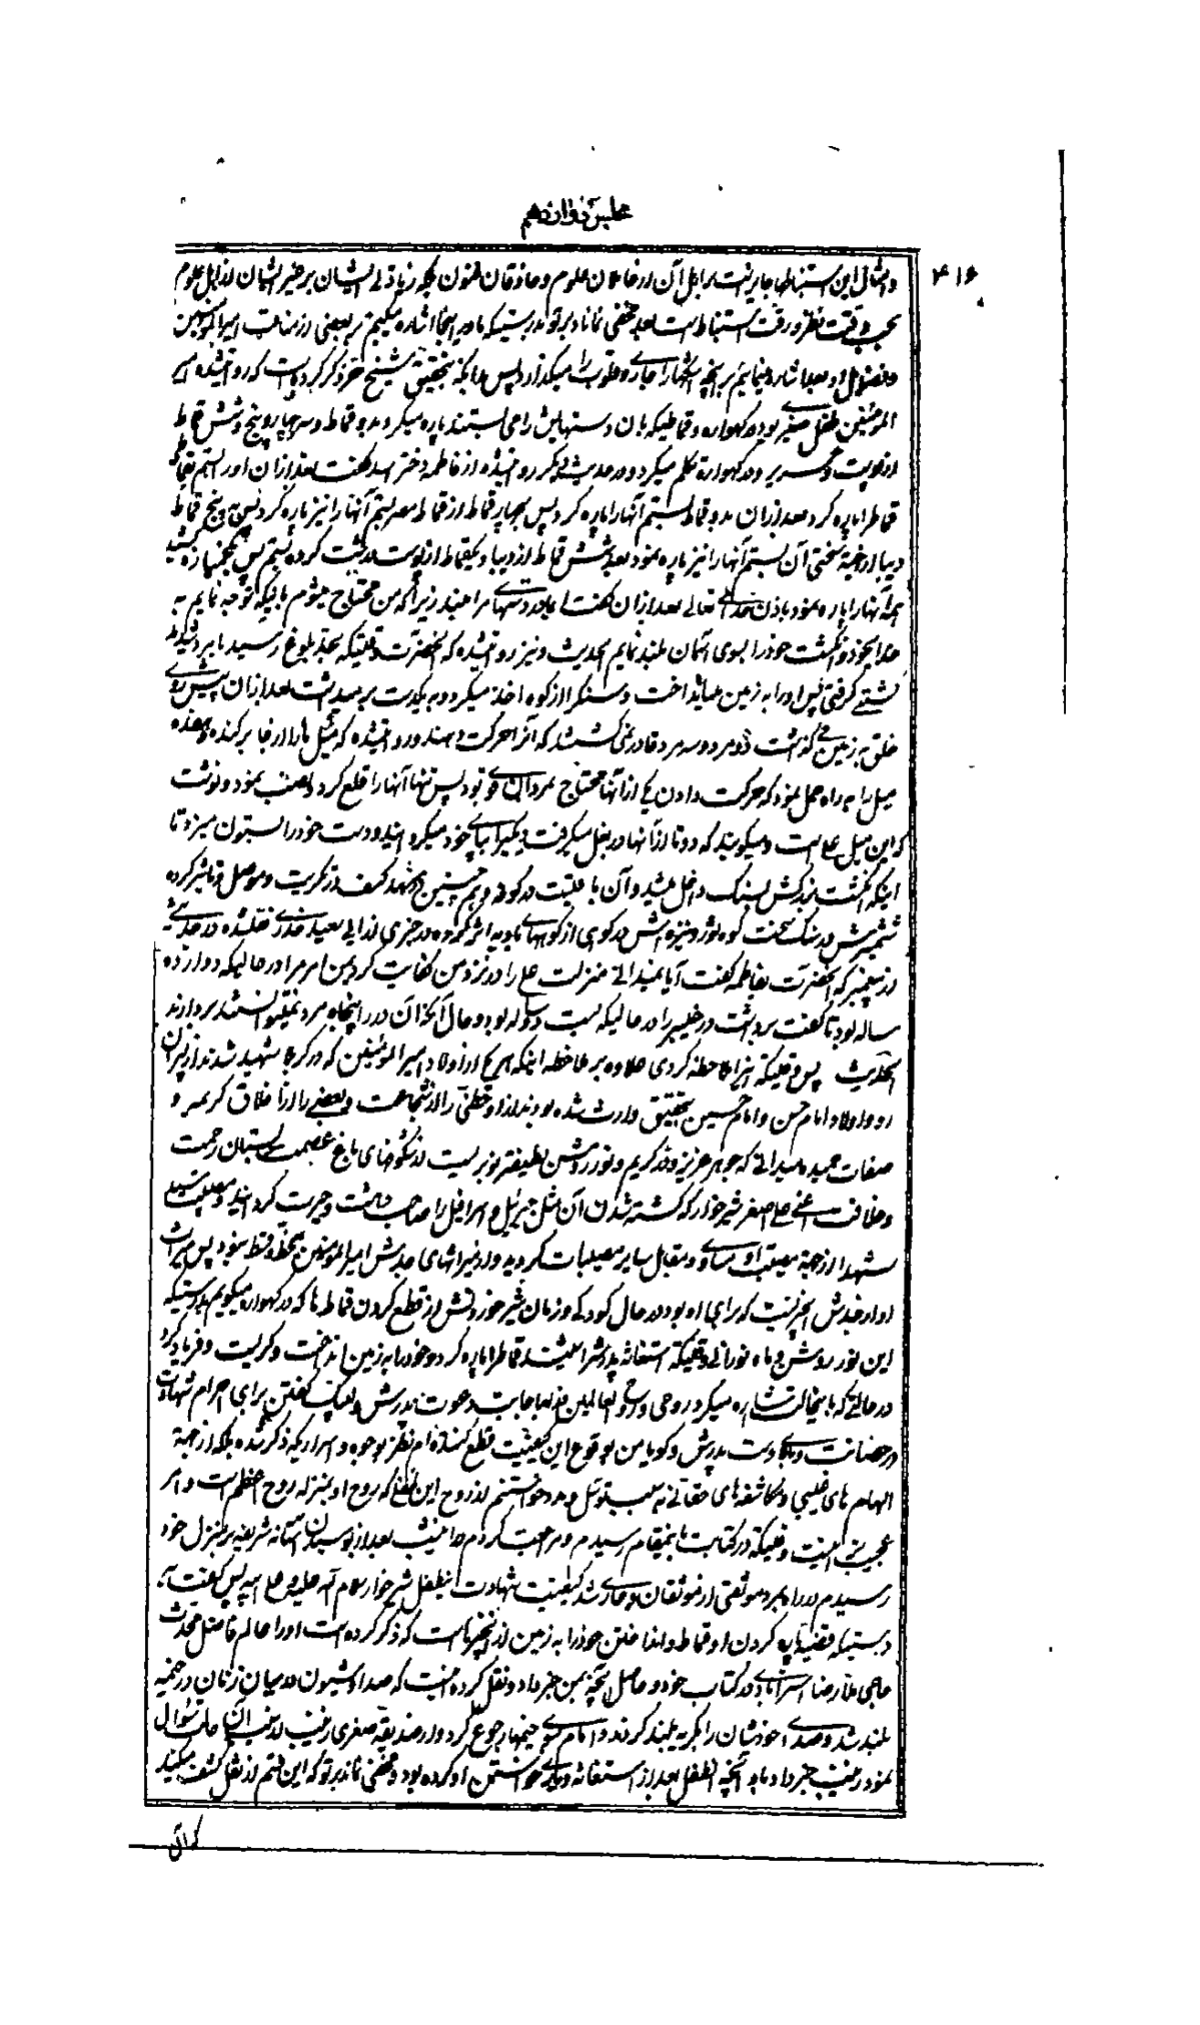 مجلس دوازدهم
۴۱۶
و امثال این استنباطها جایز نیست برای اهل آن از عارفان علوم و حاذقان فنون بلکه زیادتی ایشان بر غیر ایشان از اهل علوم
بحسب دقت نظر و رقت استنباط است بعد مخفی نماناد بر تو بدرستیکه ما در اینجا اشاره میکنیم بر بعضی از مناقب امیرالمؤمنین
و فضایل او بعد اشاره مینمایم بر آنچه اشکها را جاری و قلوب را میگدازد پس بدانکه بتحقیق شیخ حر ذکر کرده است که روایتشده
المؤمنین طفل صغیر بود در گهواره و قماطیکه بان دستهایش را می بستند پاره میکرد بدو قماط و سه و چهار و پنج و شش قماط
از پوست و حریر و در گهواره تکلم میکرد و در حدیث دیگر روایتشده از فاطمه دختر اسد گفت بعد از آن او را بستم بقماط
قماط را پاره کرد بعد از آن بدو قماط بستم آنها را پاره کرد پس بچهار قماط از قماط مصر بستم آنها را نیز پاره کرد پس به پنج قماط
دیبا از جهة سختی آن بستم آنها را نیز پاره نمود بعد بشش قماط از دیبا و یکقماط از پوست درشت کرده بستم پس خمیازه کشید
همه آنها را پاره نمود باذن خدای تعالی بعد از آن گفت ای مادر دستهای مرا مبند زیرا که من محتاج میشوم باینکه توجه نمایم به
خدا بخود و انگشت خود را بسوی آسمان بلند نمایم الحدیث و نیز روایتشده که آنحضرت وقتیکه بحد بلوغ رسید با هر کسیکه
کشتی گرفتی پس او را به زمین میانداخت و سنگ را از کوه اخذ میکرد و به یکدست بر میداشت بعد از آن پیش روی
خلق به زمین می گذاشت دو مرد و سه مرد قادر نمی شدند که آنرا حرکت دهند و روایتشده که میل ها را از جا بر کنده هفده
میل را به راه حمل نمود که حرکت دادن یکی از آنها محتاج بمردان قوی بود پس تنها آنها را قلع کرد و نصب نمود و نوشت
که این میل علی است و میگویند که دو تا از آنها در بغل میگرفت و یکیرا بپای خود میگردانید و دست خود را بستون میزد تا
اینکه انگشت بزرگش بسنگ داخل میشد و آن باقیست در کوفه و همچنین مشهد کف در تکریت و موصل و تاثیر کرده
شمشیرش در سنگ سخت کوه ثور و نیزه اش در کوهی از کوههای بادیه اثر کرده و در خبری از ابی سعید خدری نقلشده در حدیثی
از پیغمبر که آنحضرت بفاطمه گفت آیا نمیدانی منزلت علی را در نزد من کفایت کرد بمن امر مرا در حالیکه دوازده
ساله بود تا گفت برداشت در خیبر را در حالیکه بیست و دو ساله بود و حال آنکه آن در را پنجاه مرد نمیتوانستند بردارند
الحدیث پس وقتیکه اینرا ملاحظه کردی علاوه بر ملاحظه اینکه هر یک از اولاد امیرالمؤمنین که در کربلا شهید شدند از پسران
او و اولاد امام حسن و امام حسین بتحقیق وارث شده بودند از او حظی را از شجاعت و بعضی را از اخلاق کریمه و
صفات حمیده میدانی که جوهر عزیز و در کریم و نور روشن لطیفتر نوریست از شکوفهای باغ عصمت و بستان رحمت
و خلافت اعنی علی اصغر شیرخوار که کشته شدن آن مثل جبرئیل و اسرافیل را صاحب دهشت و حیرت گردانید و مصیبت سید
شهدا از جهة مصیبت او مساوی و مقابل سایر مصیبات گردید وارد میراثهای جدش امیرالمؤمنین بحظ فقط نبود پس میراث
او از جدش آنچیز نیست که برای او بود در حال کودکی و زمان شیر خوردنش از قطع کردن قماط ها که در گهواره میگویم بدرستیکه
این نور روشن و ماه نورانی وقتیکه استغاثه پدرش را شنید قماط را پاره کرد و خود را به زمین انداخت و گریست و فریاد کرد
در حالتی که باینحالت اشاره میکرد روحی و روح العالمین فداه باجابت دعوت پدرش و لبیک گفتن برای احرام شهادت
در حضانت و بالای دست پدرش و گویا من بوقوع این کیفیت قطع کننده ام نظر بوجوه و اسراریکه ذکر شده بلکه از جهة
الهام های غیبی و مکاشفه های حقانی به سبب توسل و مدد خواستنم از روح این طفل که روح او بمنزله روح اعظم است و امر
عجیب اینست وقتیکه در کتابت باینمقام رسیدم و مراجعت کردم بعد از بوسیدن آستانه شریفه بر منزل خود
رسیدم در راه بمرد موثقی از موثقان و جاری شد کیفیت شهادت اینطفل شیرخوار سلام الله علیه و علی ابیه پس گفت
بدرستیکه قضیه پاره کردن او قماط و انداختن خود را به زمین از آنچیزهاست که ذکر کرده است او را عالم فاضل محدث
حاجی ملا رضا استرابادی در کتاب خود و حاصل آنچه بمن خبر داد و نقل کرده اینست که صدا و شیون در میان زنان در خیمه
بلند شد و صدای خودشان را بگریه بلند کردند و امام بسوی خیمها رجوع کرد و از صدیقه صغری زینب از سبب آن حالت سئوال
نمود زینب خبر داد باو آنچه آنطفل بعد از استغاثه و یاری خواستن او کرده بود و مخفی نماند بر تو که این قسم از نقل کشف میکند
که آن